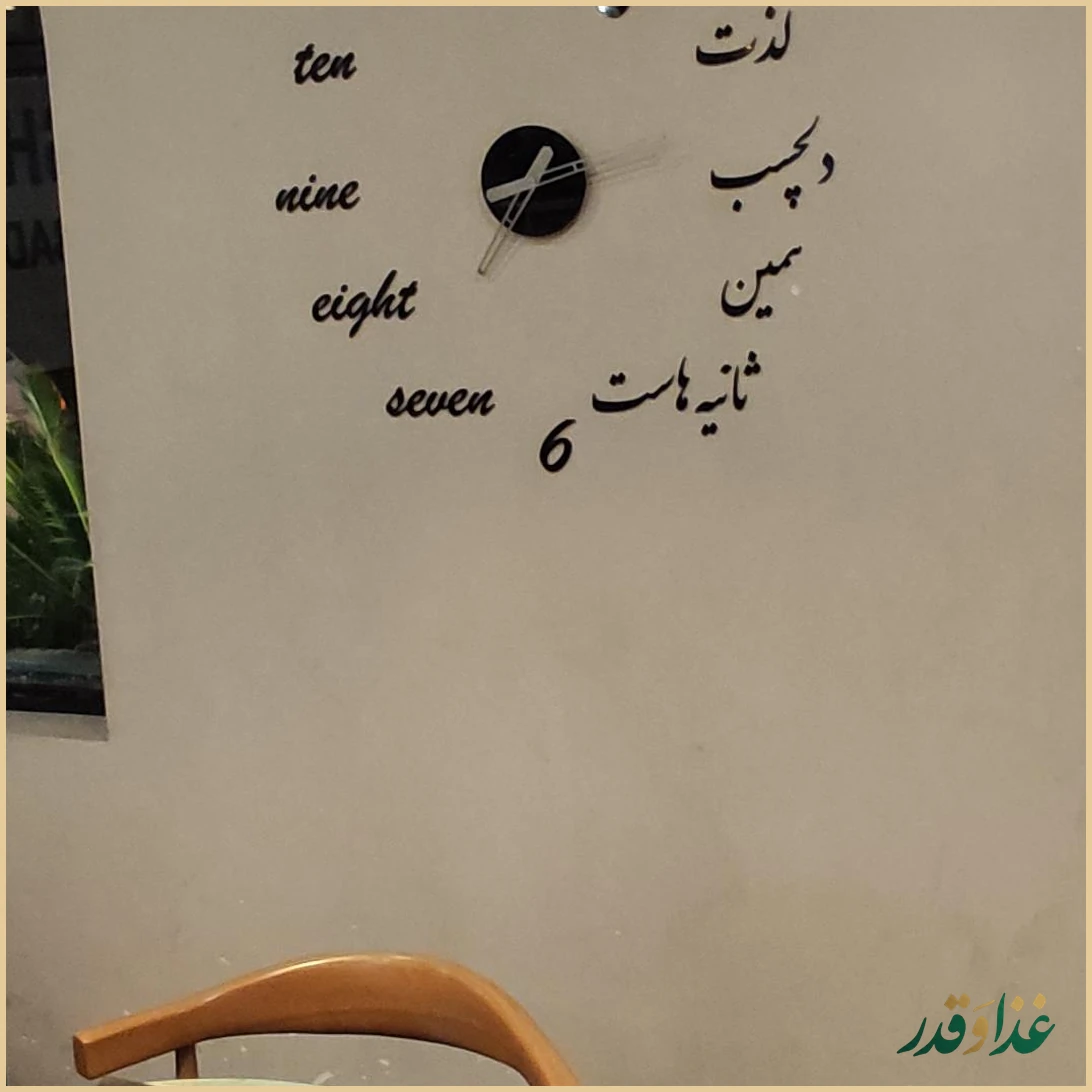 لذت
دلچسب
همین
ثانیه هاست
6
seven
eight
nine
ten
غذا و قدر